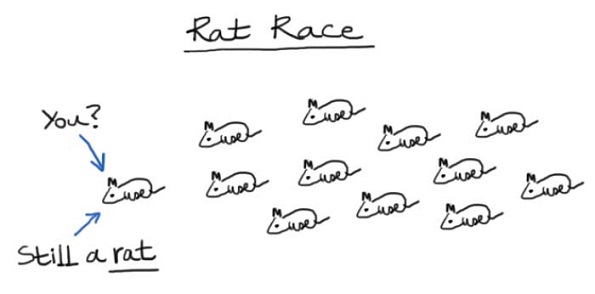 Rat Race
You?
Still a rat